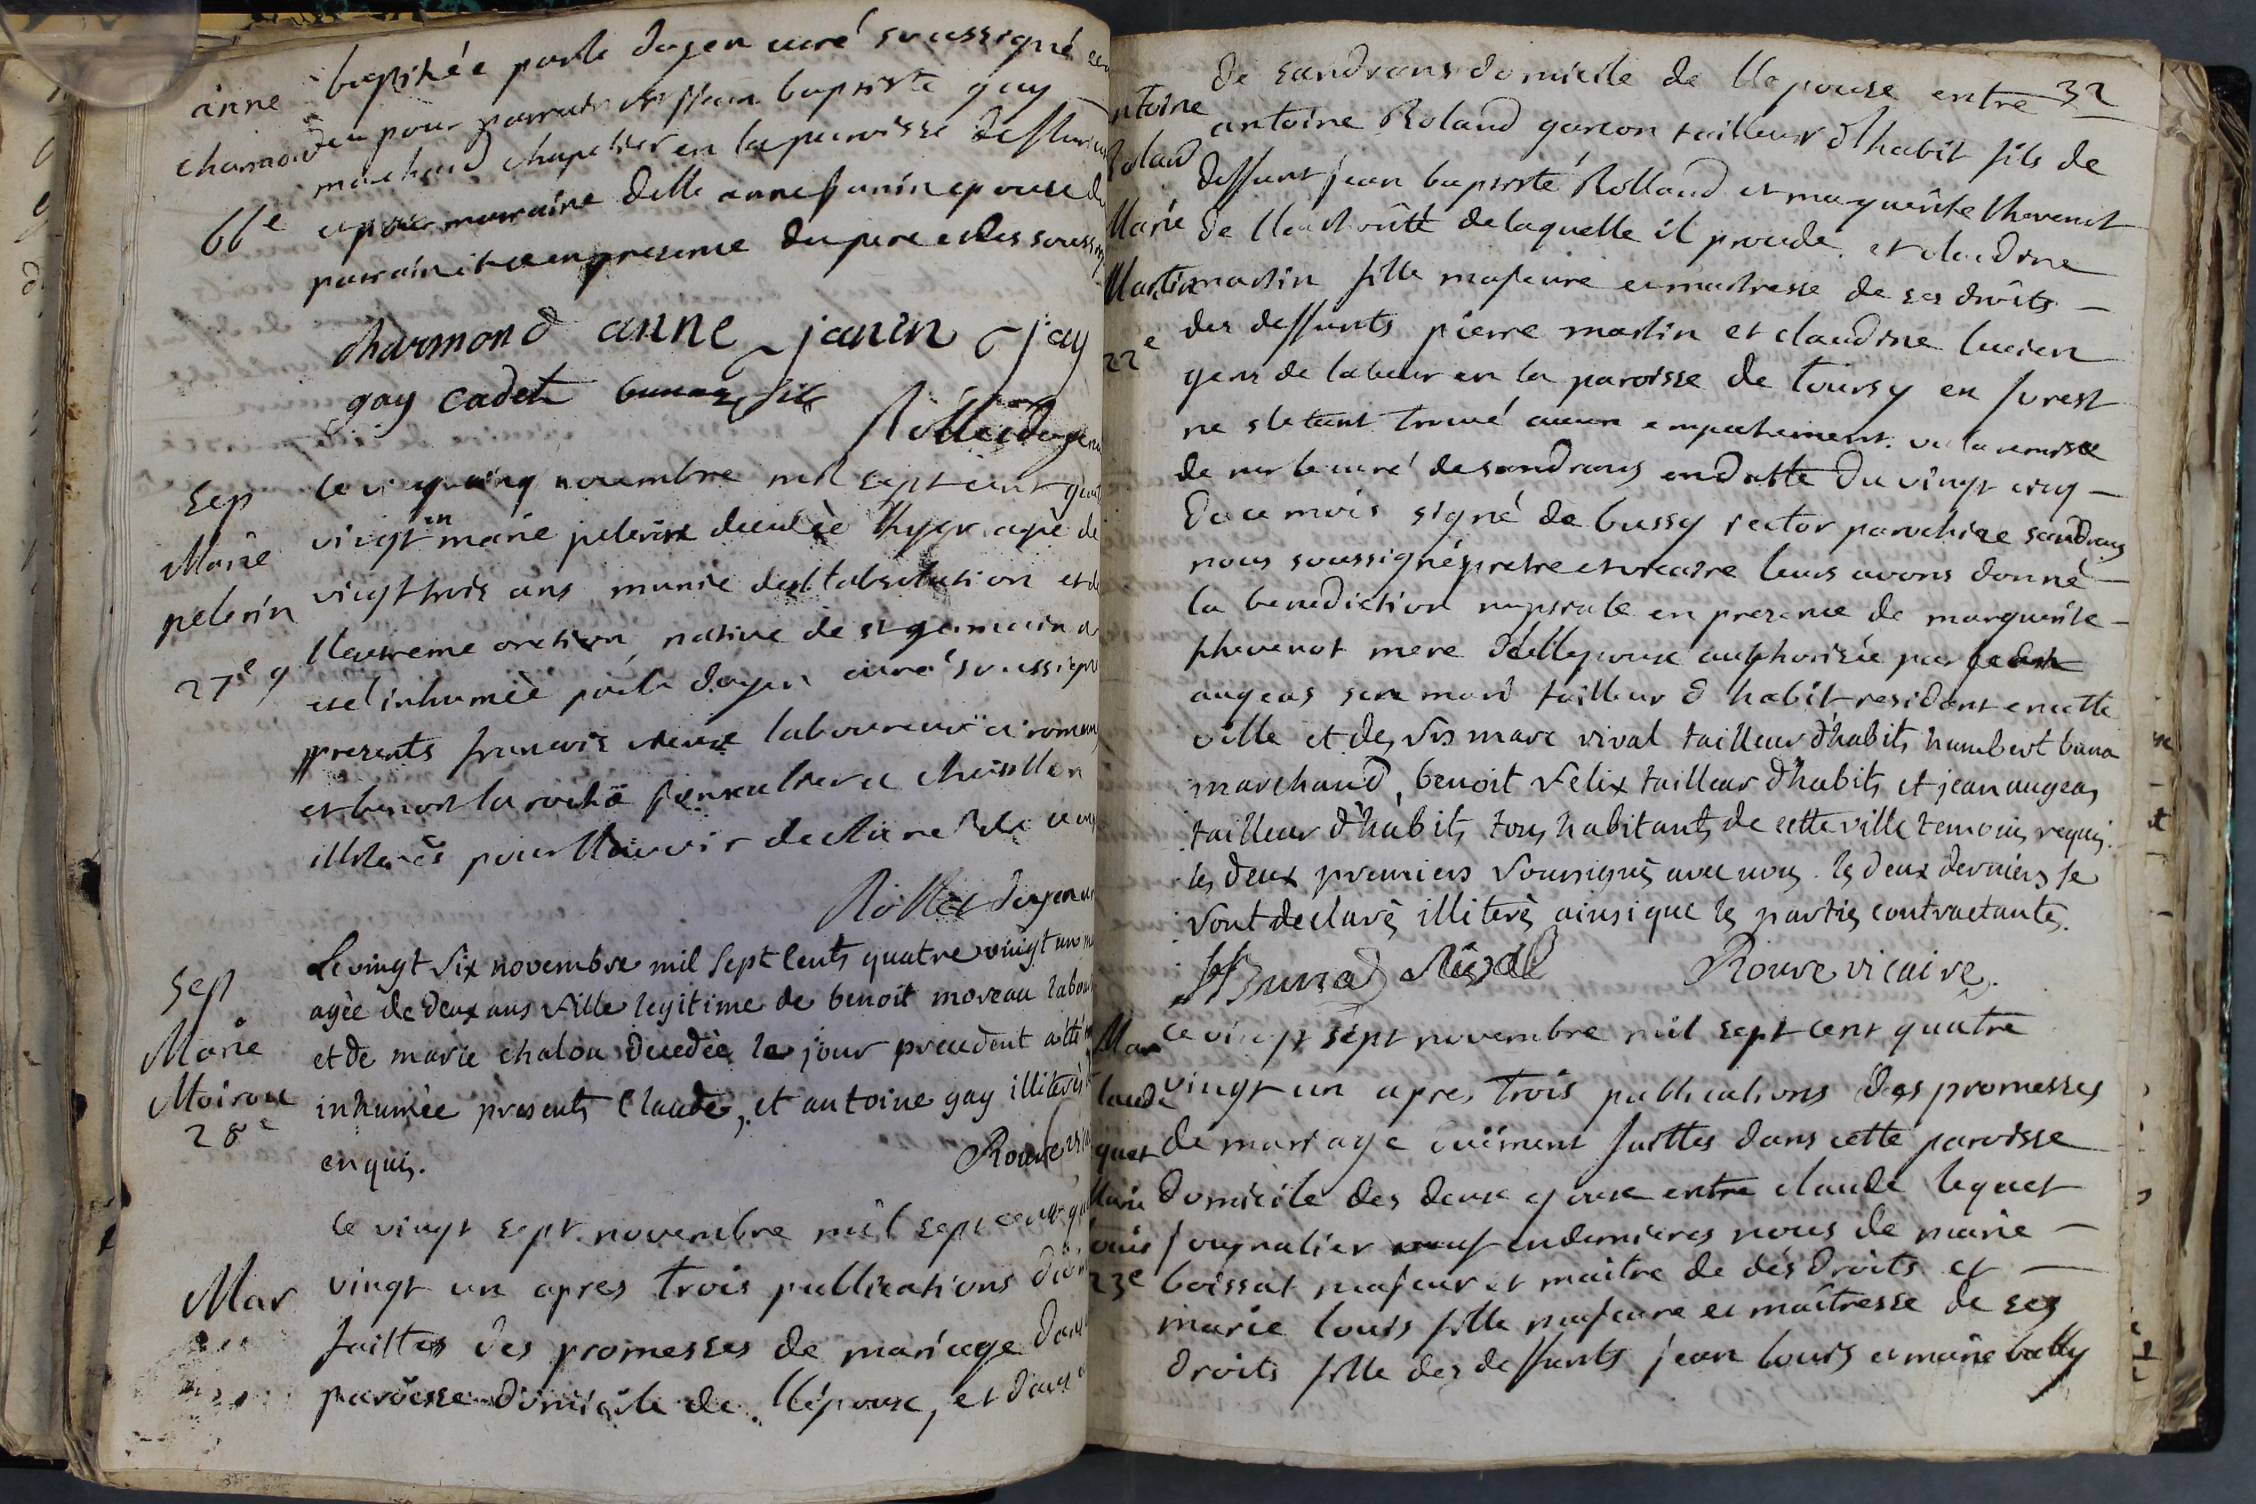 anne
charmond
66e
baptisée par le doyen curé soussigné
eu pour parrain sr jean baptiste gay
marchand chapelier en la paroisse de
et pour marraine delle anne janin epouse du
parrain et ce en presence du pere et des
charmond anne janin gay
gay cadet fils
doyen
Sep
Marie
pelerin
27e
le vingt cinq novembre mil sept cent
vingt un marie pelerin decedée hyer agé de
vingt trois ans munie de l'absolution et de
l'extreme onction, native de st germain
eté inhumée par le doyen curé soussigné
presents francois laboureur a
et benoit la roche a
illiterés pour l'avoir declaré de ce
doyen
Sep
Marie
Moirou
28e
Le vingt six novembre mil sept cents quatre vingt un
agée de deux ans fille legitime de benoit moreau
et de marie chalon decedée le jour precedent a été
inhumée presents Claude, et antoine gay illiterés
enquis.
Rouve
Mar
le vingt sept novembre mil sept cent
vingt un apres trois publications
faittes des promesses de mariage dans
paroisse domicile de l'épouse, et dans
32
ntoine
Roland
Marie
Martin
22e
de sandrans domicile de l'epouse entre
antoine Roland garcon tailleur d'habit fils de
deffunt jean baptiste Rolland et marguerite thevenot
de l'authorité de laquelle il procede. et claudine
martin fille majeure et maitresse de ses droits
des deffunts pierre martin et claudine lucien
gens de labeur en la paroisse de toursy en forest
ne s'etant trouvé aucun empechement. vu la remise
de mr le curé de sandrans en datte du vingt cinq
de ce mois signé de bussy rector parochiae sandrans
nous soussigné pretre et vicaire leurs avons donné
la benediction nuptiale en presence de marguerite
thevenot mere de l'epoux authorisée par
augeas son mari tailleur d'habit residant en cette
ville et des srs marc rival tailleur d'habits humbert buna
marchand, benoit felix tailleur d'habits et jean augeas
tailleur d'habits tous habitants de cette ville temoins requis.
les deux premiers soussignés avec nous. les deux derniers se
sont declarés illiterés ainsi que les parties contractantes.
Rouve vicaire.
Mar
laude
quet
Marie
ouis
23e
Le vingt sept novembre mil sept cent quatre
vingt un apres trois publications des promesses
de mariage duëment faittes dans cette paroisse
domicile des deux epoux entre claude lequet
journalier veuf en dernieres noces de marie
boissat majeur et maitre de ses droits et
marie louis fille majeure et maitresse de ses
droits fille des deffunts jean louis et marie